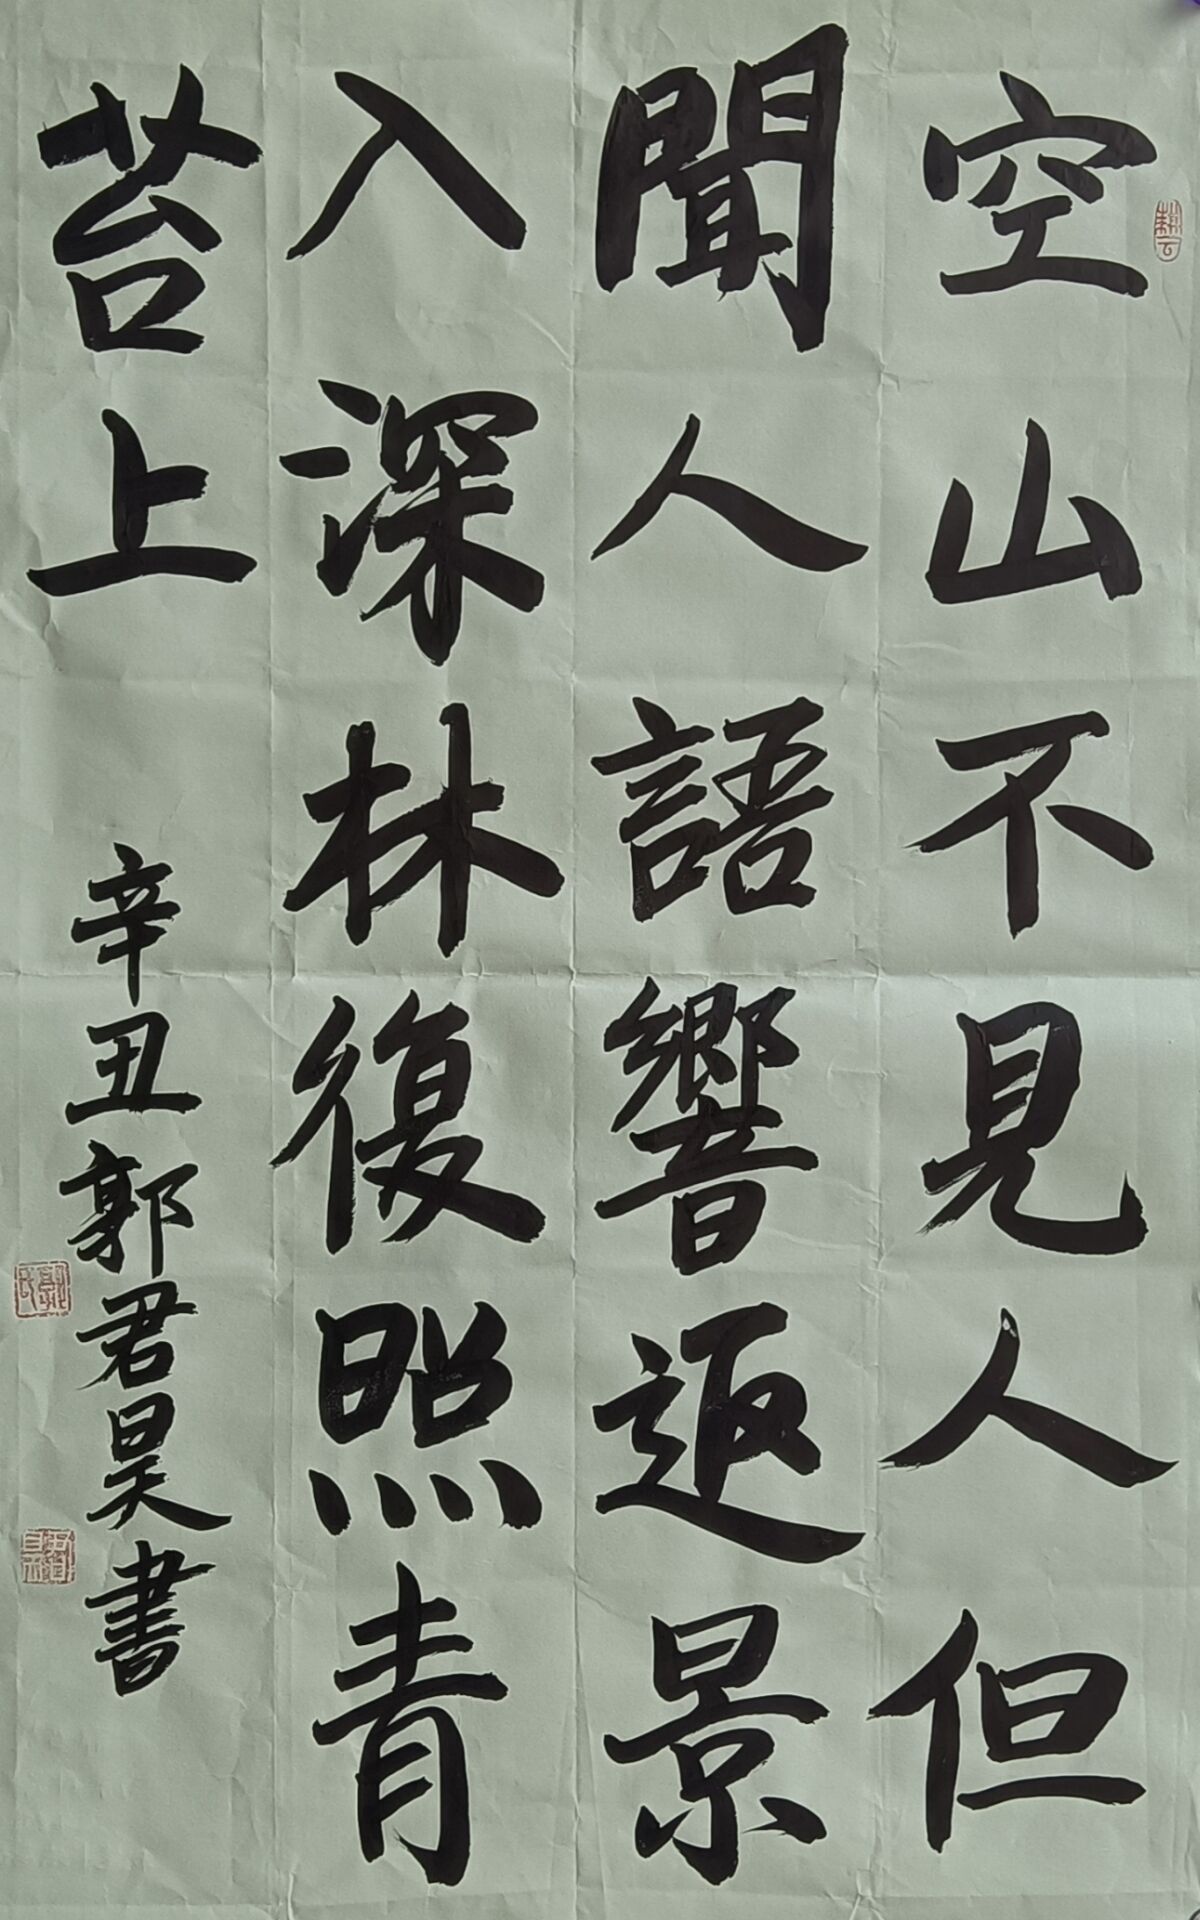 空山不見人但
聞人語響返景
入深林復照青
苔上
辛丑郭君昊書
耕云
郭氏
君昊